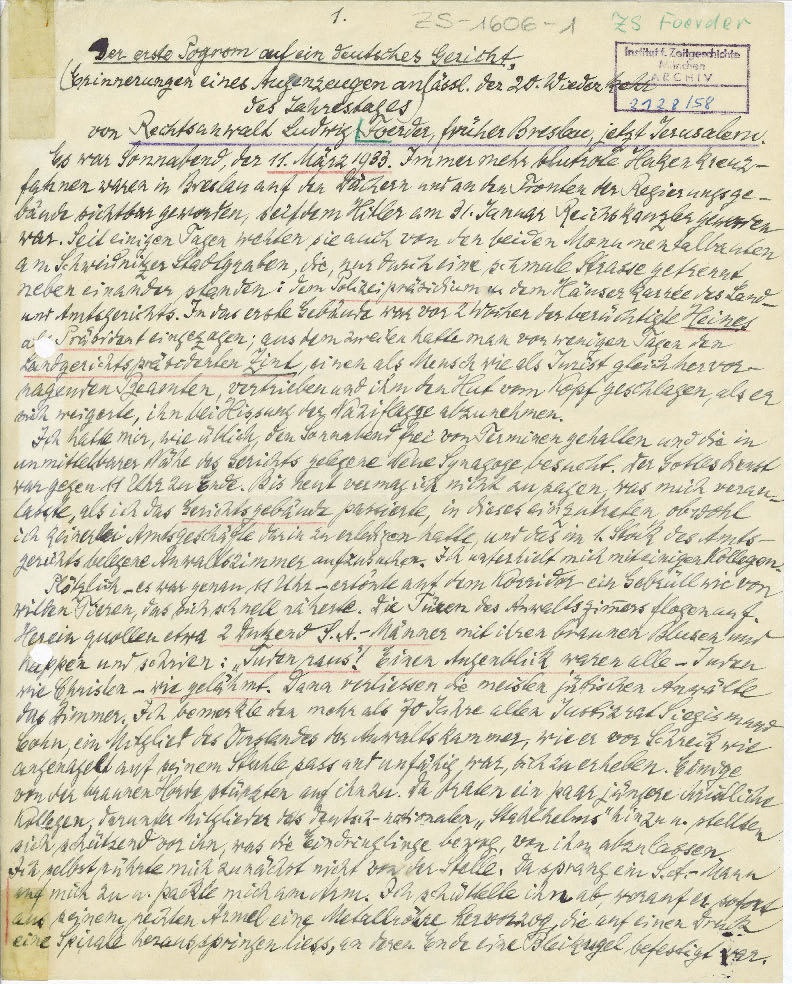 1.
ZS-1606-1
ZS Foerder
Institut f. Zeitgeschichte
München
ARCHIV
2128/58
Der erste Pogrom auf ein deutsches Gericht.
(Erinnerungen eines Augenzeugen anlässl. der 20. Wiederkehr
des Jahrestages)
von Rechtsanwalt Ludwig Foerder, früher Breslau, jetzt Jerusalem.
Es war Sonnabend, der 11. März 1933. Immer mehr blutrote Hakenkreuz-
fahnen waren in Breslau auf den Dächern und an den Fronten der Regierungsge-
bäude sichtbar geworden, seitdem Hitler am 31. Januar Reichskanzler geworden
war. Seit einigen Tagen wehten sie auch von den beiden Monumentalbauten
am Schweidnitzer Stadtgraben, die, nur durch eine schmale Strasse getrennt
neben einander standen: dem Polizeipräsidium u. dem Häuser Karrée des Land-
und Amtsgerichts. In das erste Gebäude war vor 2 Wochen der berüchtigte Heines
als Präsident eingezogen; aus dem zweiten hatte man vor wenigen Tagen den
Landgerichtspräsidenten Zint, einen als Mensch wie als Jurist gleich hervor-
ragenden Beamten, vertrieben und ihm den Hut vom Kopf geschlagen, als er
sich weigerte, ihn bei Hissung der Naziflagge abzunehmen.
Ich hatte mir, wie üblich, den Sonnabend frei von Terminen gehalten und die in
unmittelbarer Nähe des Gerichts gelegene Neue Synagoge besucht. Der Gottesdienst
war gegen 11 Uhr zu Ende. Bis heut vermag ich nicht zu sagen, was mich veran-
lasste, als ich das Gerichtsgebäude passierte, in dieses einzutreten, obwohl
ich keinerlei Amtsgeschäfte darin zu erledigen hatte, und das im 1. Stock des Amts-
gerichts belegene Anwaltszimmer aufzusuchen. Ich unterhielt mich mit einigen Kollegen.
Plötzlich - es war genau 11 Uhr - ertönte auf dem Korridor ein Gebrüll wie von
wilden Tieren, das sich schnell näherte. Die Türen des Anwaltszimmers flogen auf.
Herein quollen etwa 2 Dutzend S.A.-Männer mit ihren braunen Blusen und
Kappen und schrien: „Juden raus"! Einen Augenblick waren alle - Juden
wie Christen - wie gelähmt. Dann verliessen die meisten jüdischen Anwälte
das Zimmer. Ich bemerkte den mehr als 70 Jahre alten Justizrat Siegismund
Cohn, ein Mitglied des Vorstandes der Anwaltskammer, wie er vor Schreck wie
angenagelt auf seinem Stuhle sass und unfähig war, sich zu erheben. Einige
von der braunen Horde stürzten auf ihn zu. Da traten ein paar jüngere christliche
Kollegen, darunter Mitglieder des deutsch-nationalen „Stahlhelms" hinzu u. stellten
sich schützend vor ihn, was die Eindringlinge bewog, von ihm abzulassen.
Ich selbst rührte mich zunächst nicht von der Stelle. Da sprang ein S.A.-Mann
auf mich zu u. packte mich am Arm. Ich schüttelte ihn ab, worauf er sofort
aus seinem rechten Ärmel eine Metallröhre hervorzog, die auf einen Druck
eine Spirale herausspringen liess, an deren Ende eine Bleikugel befestigt war.